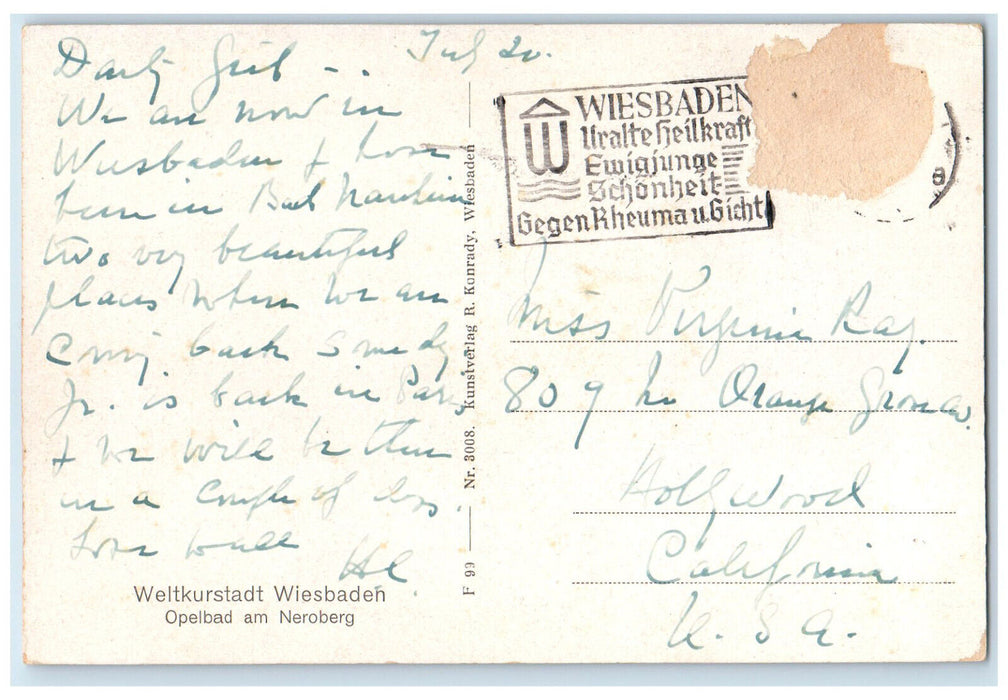 July 20.
Darling Girl - . .
We are now in
Wiesbaden & have
been in Bad Nauheim
two very beautiful
places where we are
coming back someday.
Jr. is back in Paris
& we will be there
in a couple of days.
Love to all
Al
Weltkurstadt Wiesbaden
Opelbad am Neroberg
F 99
Nr. 3008. Kunstverlag R. Konrady, Wiesbaden
W
WIESBADEN
Uralte Heilkraft
Ewigjunge
Schönheit
Gegen Rheuma u. Gicht
8
Miss Virginia Ray.
809 No Orange Grove av.
Hollywood
California
U. S. A.